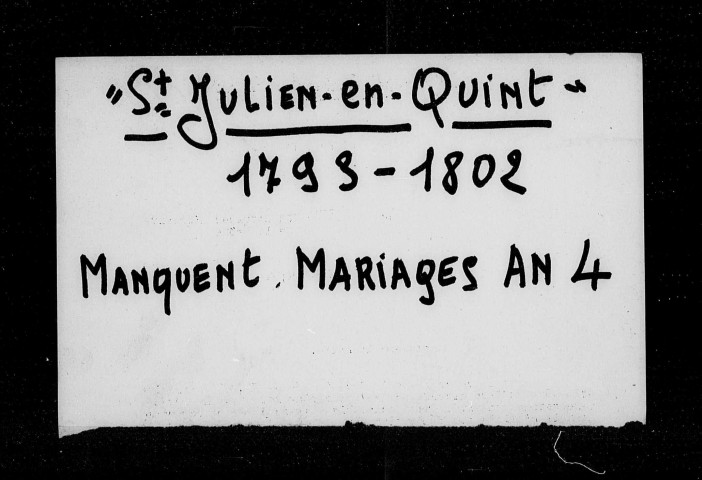 "St Julien-en-Quint"
1793-1802
Manquent Mariages An 4